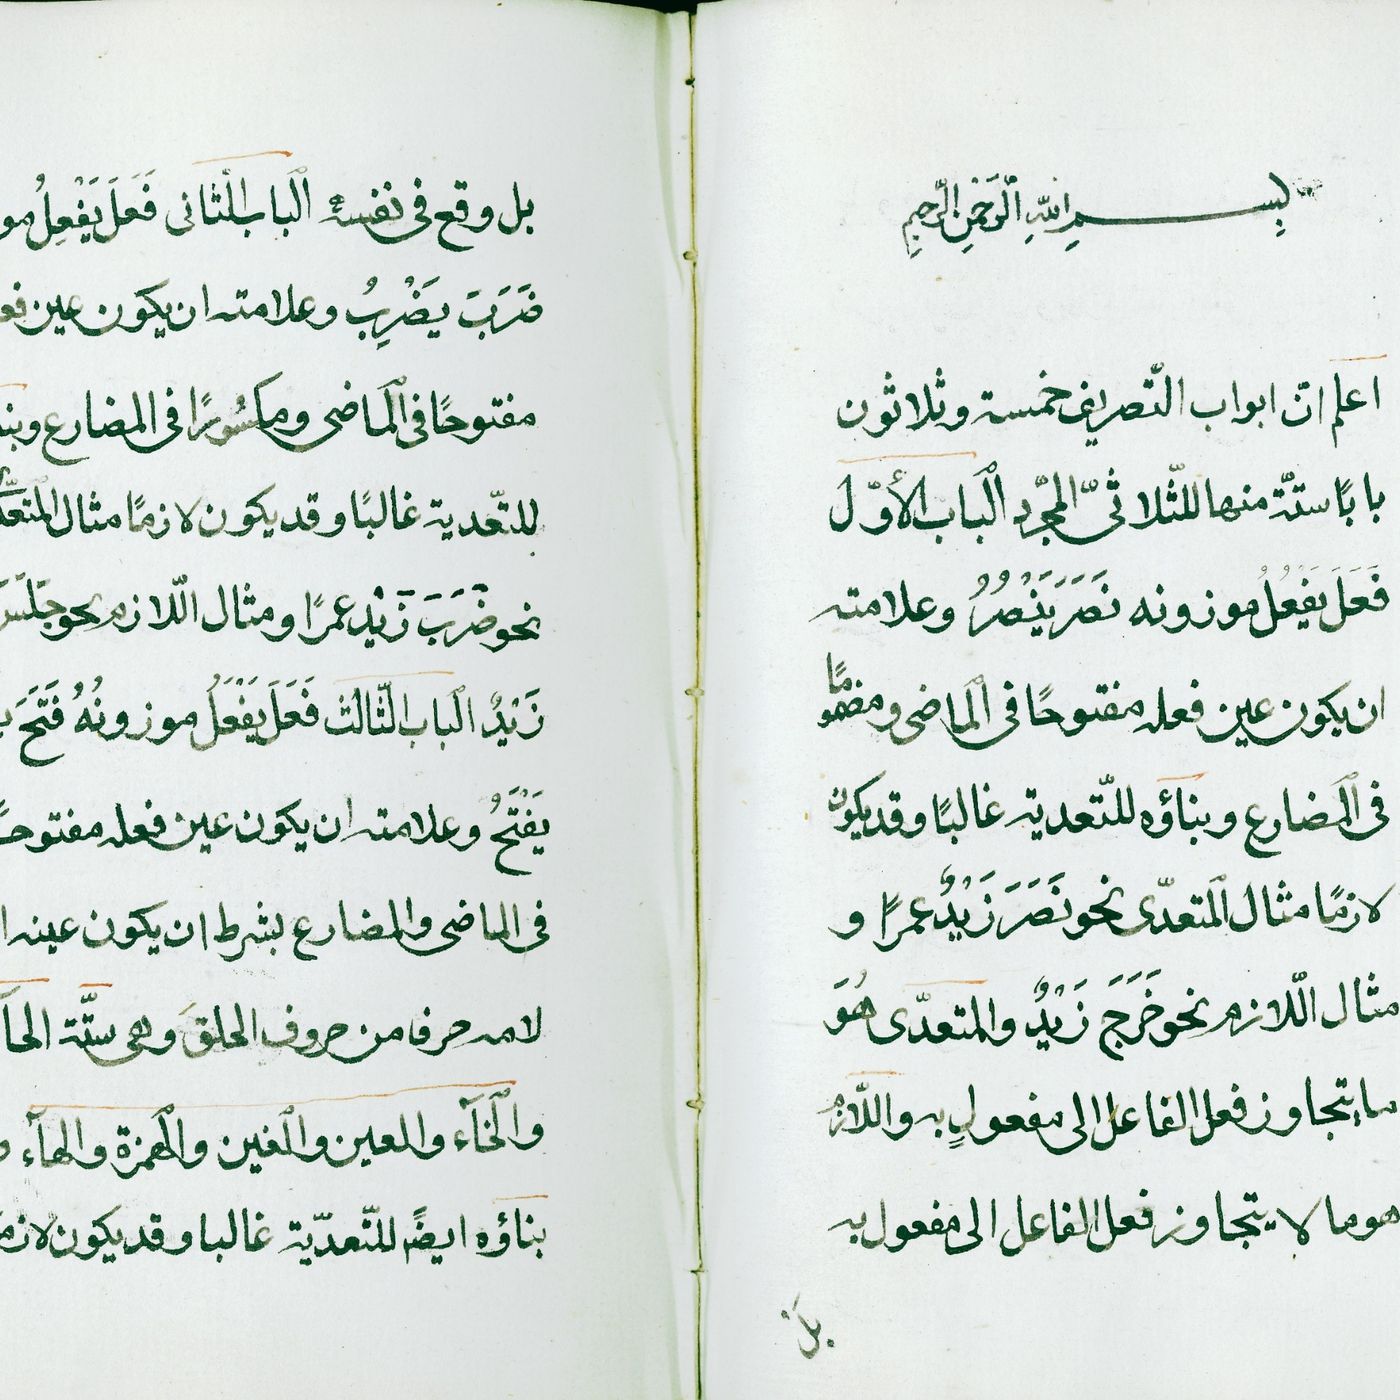 بِسْمِ اللّٰهِ الرَّحْمٰنِ الرَّحِيمِ
اعلم انّ ابواب التّصريف خمسة وثلاثون
بابًا ستّة منها للثّلاثىّ المجرّد الباب الأوّل
فَعَلَ يَفْعُلُ موزونه نَصَرَ يَنْصُرُ وعلامته
ان يكون عين فعله مفتوحًا فى الماضى ومضمومًا
فى المضارع وبناؤه للتّعدية غالبًا وقد يكون
لازمًا مثال المتعدّى نحو نَصَرَ زَيْدٌ عمرًا و
مثال اللّازم نحو خَرَجَ زَيْدٌ والمتعدّى هُوَ
ما يتجاوز فعل الفاعل الى مفعولٍ به واللّازم
هو ما لا يتجاوز فعل الفاعل الى مفعول به
بل
بل وقع فى نفسه الباب الثانى فَعَلَ يَفْعِلُ مو
ضَرَبَ يَضْرِبُ وعلامته ان يكون عين فع
مفتوحًا فى الماضى ومكسُورًا فى المضارع وبن
للتّعدية غالبًا وقد يكون لازمًا مثال المتعدّ
نحو ضَرَبَ زَيْد عمرًا ومثال اللّازم نحو جَلَسَ
زَيْدٌ الباب الثّالث فَعَلَ يَفْعَلُ موزونُهُ فَتَحَ
يَفْتَحُ وعلامته ان يكون عين فعله مفتوحً
فى الماضى والمضارع بشرط ان يكون عينه ا
لامه حرفا من حروف الحلق وهى ستّة الحآ
والخآء والعين والغين والهمزة والهآء و
بناؤه ايضًا للتّعديّة غالبا وقد يكون لازم